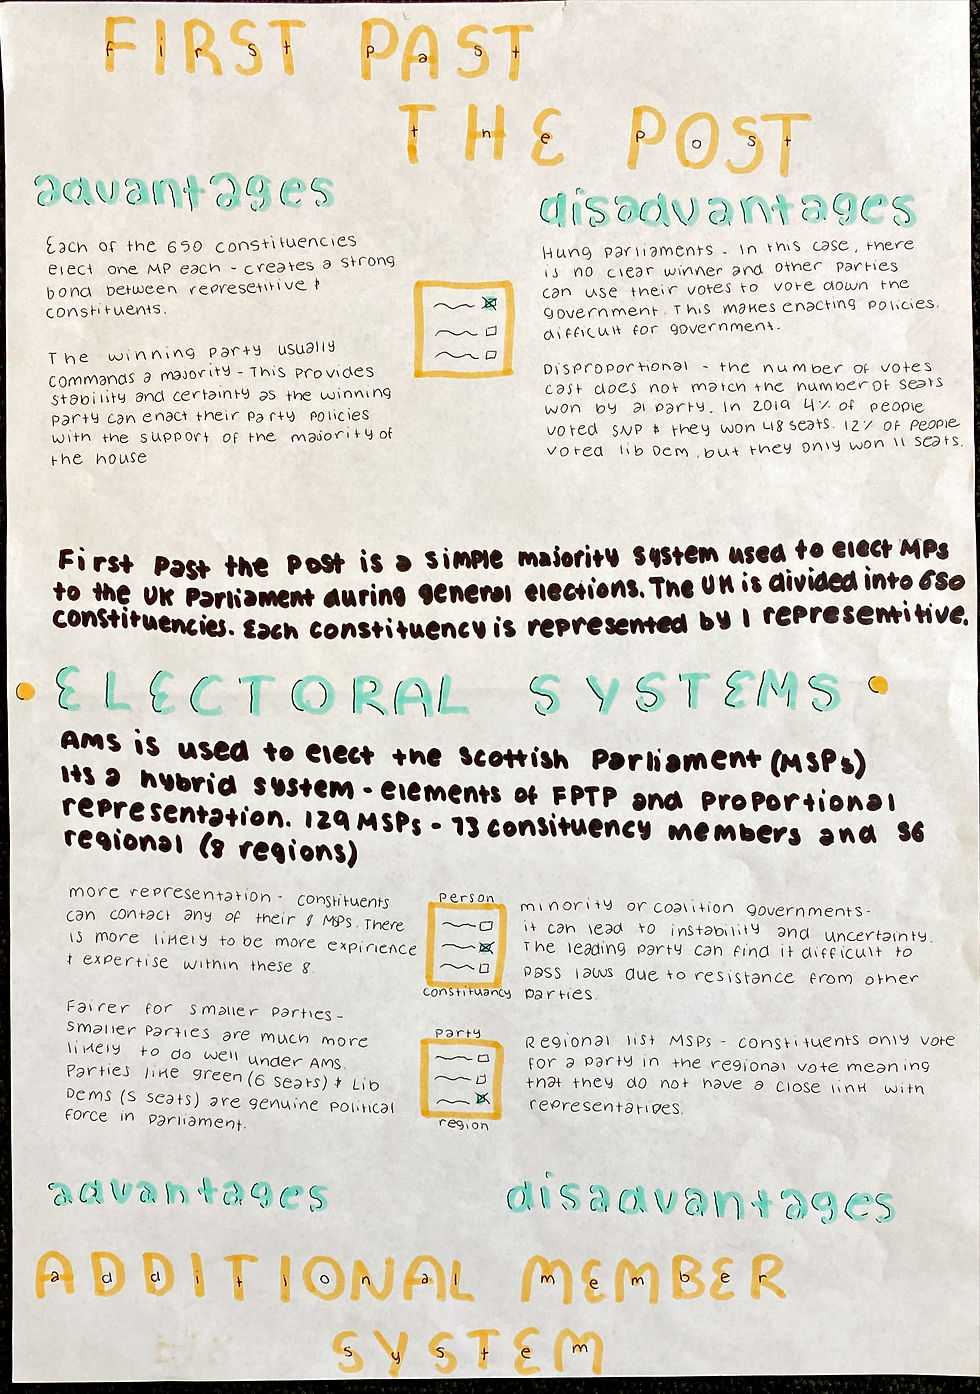 FIRST PAST
first past
THE POST
the post
advantages
Each of the 650 constituencies
elect one MP each - creates a strong
bond between represetitive &
constituents.
The winning party usually
commands a majority - This provides
stability and certainty as the winning
party can enact their party policies
with the support of the majority of
the house
disadvantages
Hung parliaments - In this case, there
is no clear winner and other parties
can use their votes to vote down the
government. This makes enacting policies.
difficult for government.
Disproportional - the number of votes
cast does not match the number of seats
won by a party. In 2019 4% of people
voted SNP & they won 48 seats. 12% of people
voted lib Dem, but they only won 11 seats.
First Past the Post is a simple majority system used to elect MPs
to the UK Parliament during general elections. The UK is divided into 650
constituencies. Each constituency is represented by 1 representitive.
ELECTORAL SYSTEMS
AMS is used to elect the Scottish Parliament (MSPs)
Its a hybrid system - elements of FPTP and Proportional
representation. 129 MSPs - 73 consituency members and 56
regional (8 regions)
more representation - constituents
can contact any of their 8 MSPs. There
is more likely to be more expirience
& expertise within these 8.
Fairer for smaller parties -
Smaller Parties are much more
likely to do well under AMS.
Parties like green (6 seats) & Lib
Dems (5 seats) are genuine political
force in parliament.
person
constituancy
party
region
minority or coalition governments -
it can lead to instability and uncertainty.
The leading party can find it difficult to
pass laws due to resistance from other
parties.
Regional list MSPs - constituents only vote
for a party in the regional vote meaning
that they do not have a close link with
representatives.
advantages
disadvantages
ADDITIONAL MEMBER
additional member
SYSTEM
system